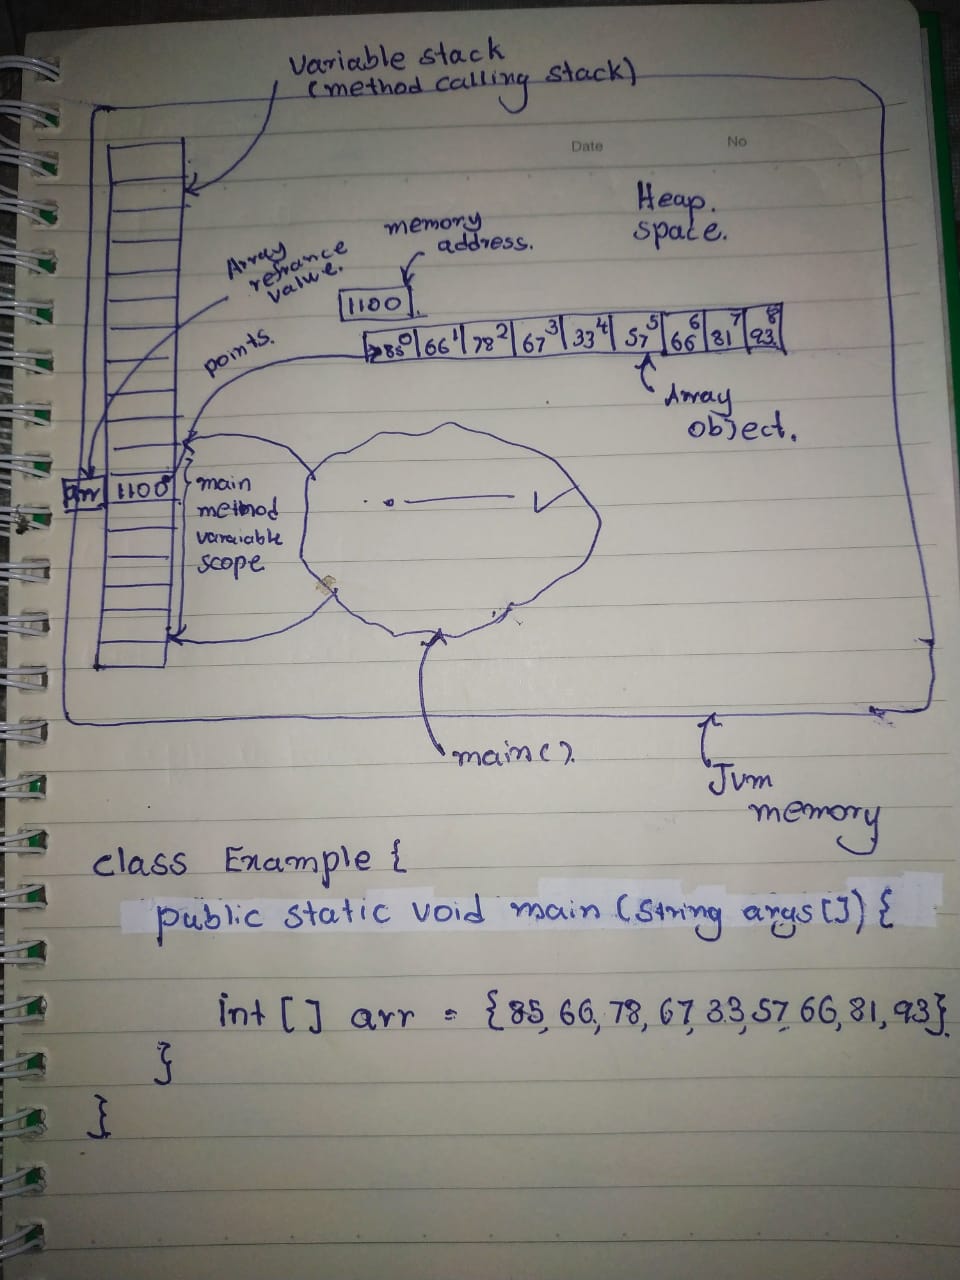 Variable stack
(method calling stack)
Date
No
Heap.
space.
memory
address.
Array
refrance
value.
1100
points.
85 0 66 1 78 2 67 3 33 4 57 5 66 6 81 7 93 8
Array
object.
arr 1100
main
method
varaiable
scope
main().
Jvm
memory
class Example {
public static void main (String args[]) {
int [] arr = {85, 66, 78, 67, 33, 57, 66, 81, 93}
}
}